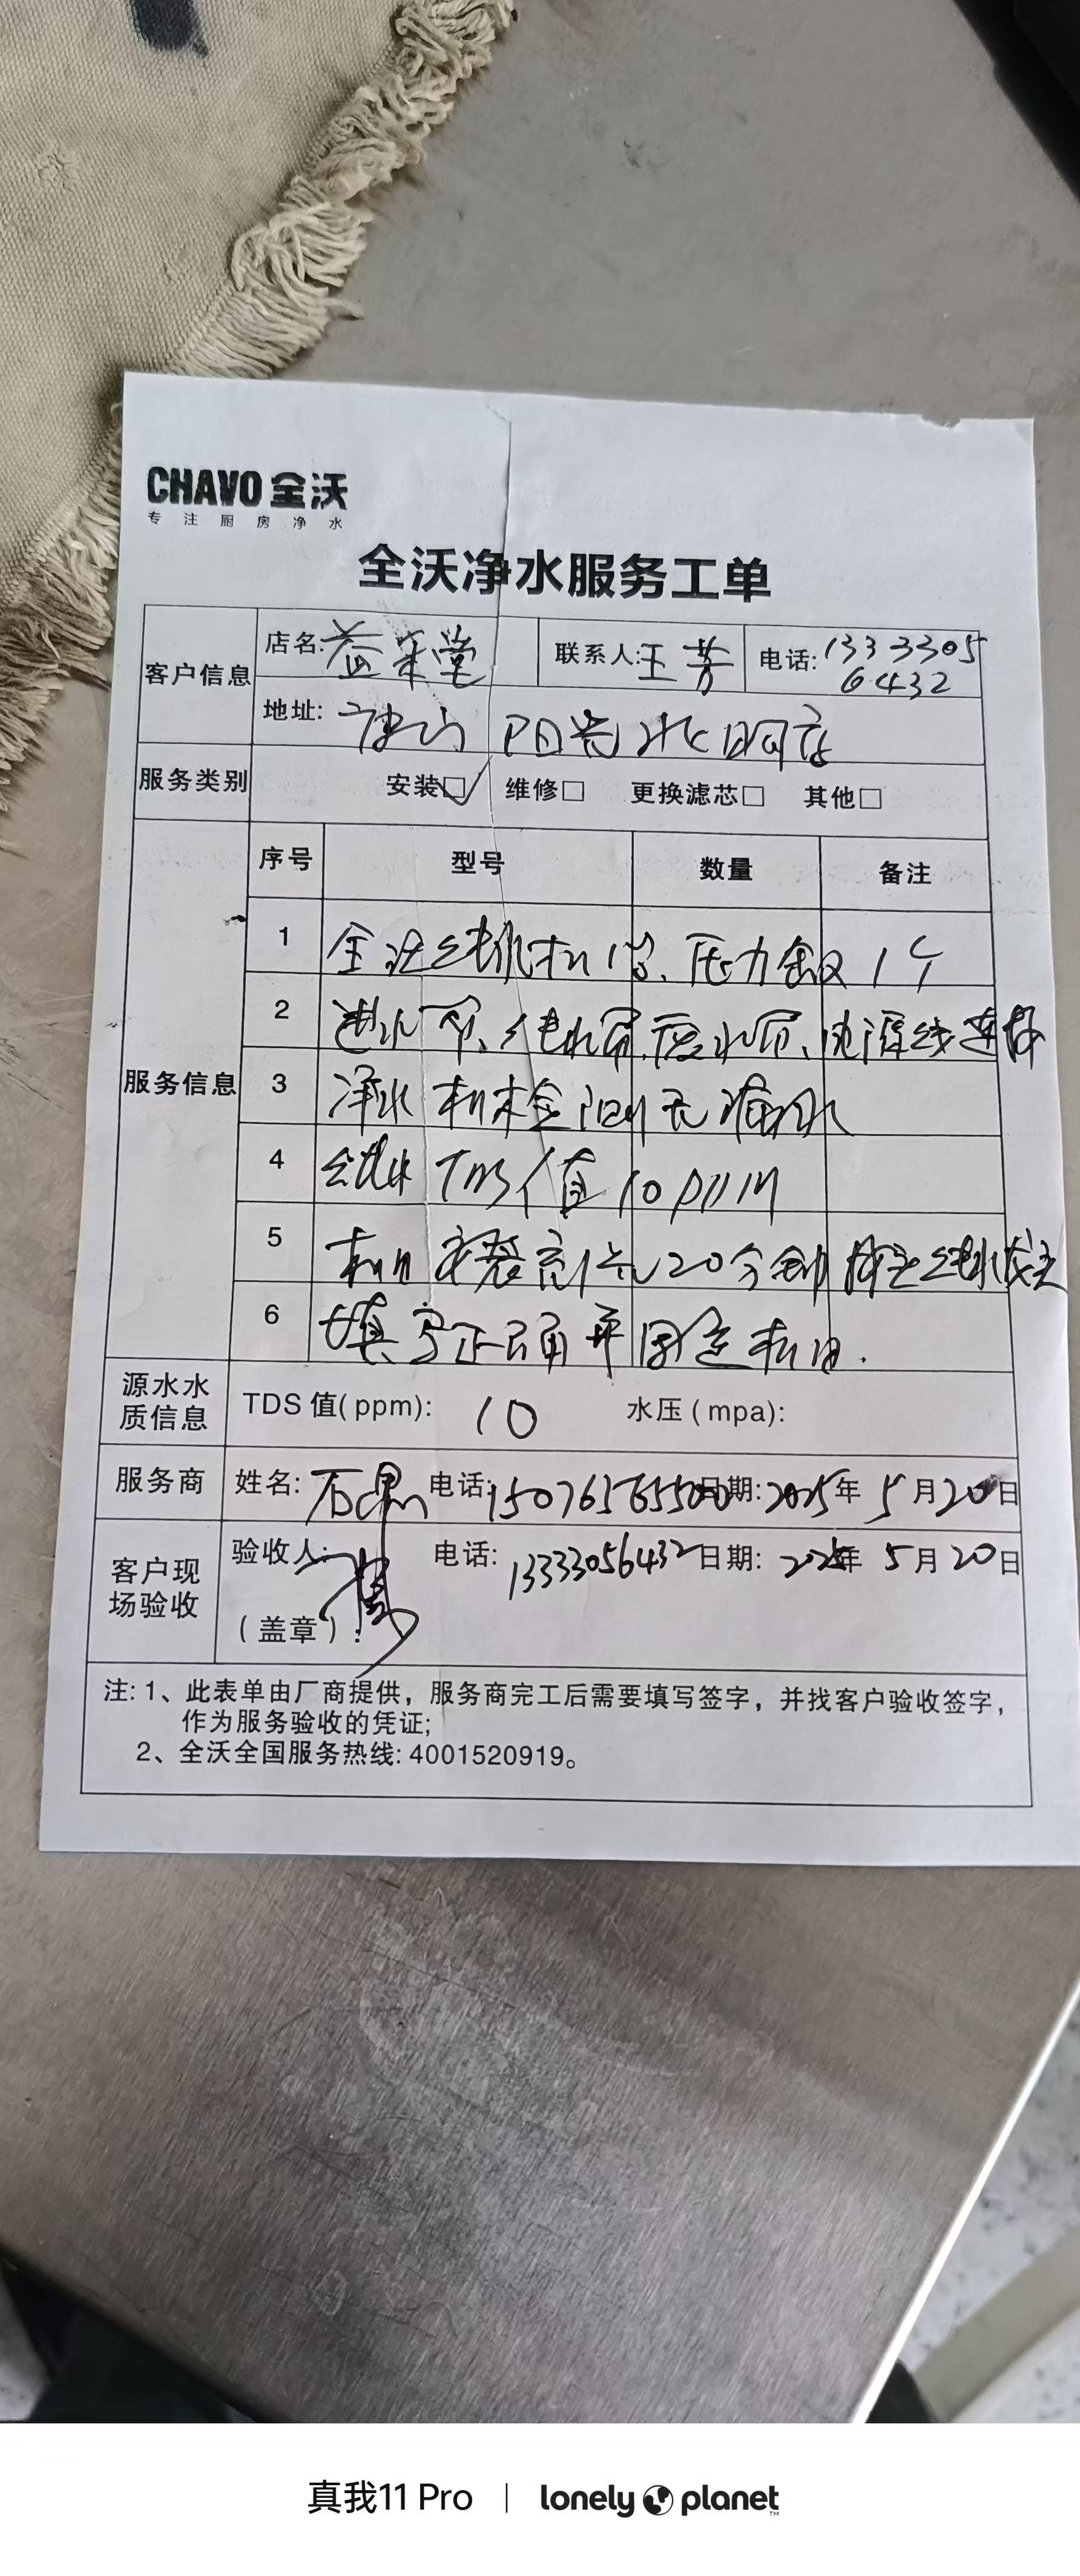 CHAVO 全沃
专注厨房净水
全沃净水服务工单
客户信息 店名: 益禾堂 联系人: 王芳 电话: 13333056432
地址: 唐山 阳光北
服务类别 安装☑ 维修□ 更换滤芯□ 其他□
服务信息 序号 型号 数量 备注
1 全沃纯水机1台、压力 1个
2 进水管、纯水管、废水管、电源线连接
3 净水机检测无漏水
4 纯水TDS值10ppm
5 机 20分钟
6 填写正确并固定
源水水质信息 TDS 值(ppm): 10 水压(mpa):
服务商 姓名: 石 电话: 日期: 2025年 5月20日
客户现场验收 验收人: 电话: 13333056432 日期: 2025年 5月20日
(盖章):
注: 1、此表单由厂商提供，服务商完工后需要填写签字，并找客户验收签字，
作为服务验收的凭证;
2、全沃全国服务热线: 4001520919。
真我11 Pro | lonely planet